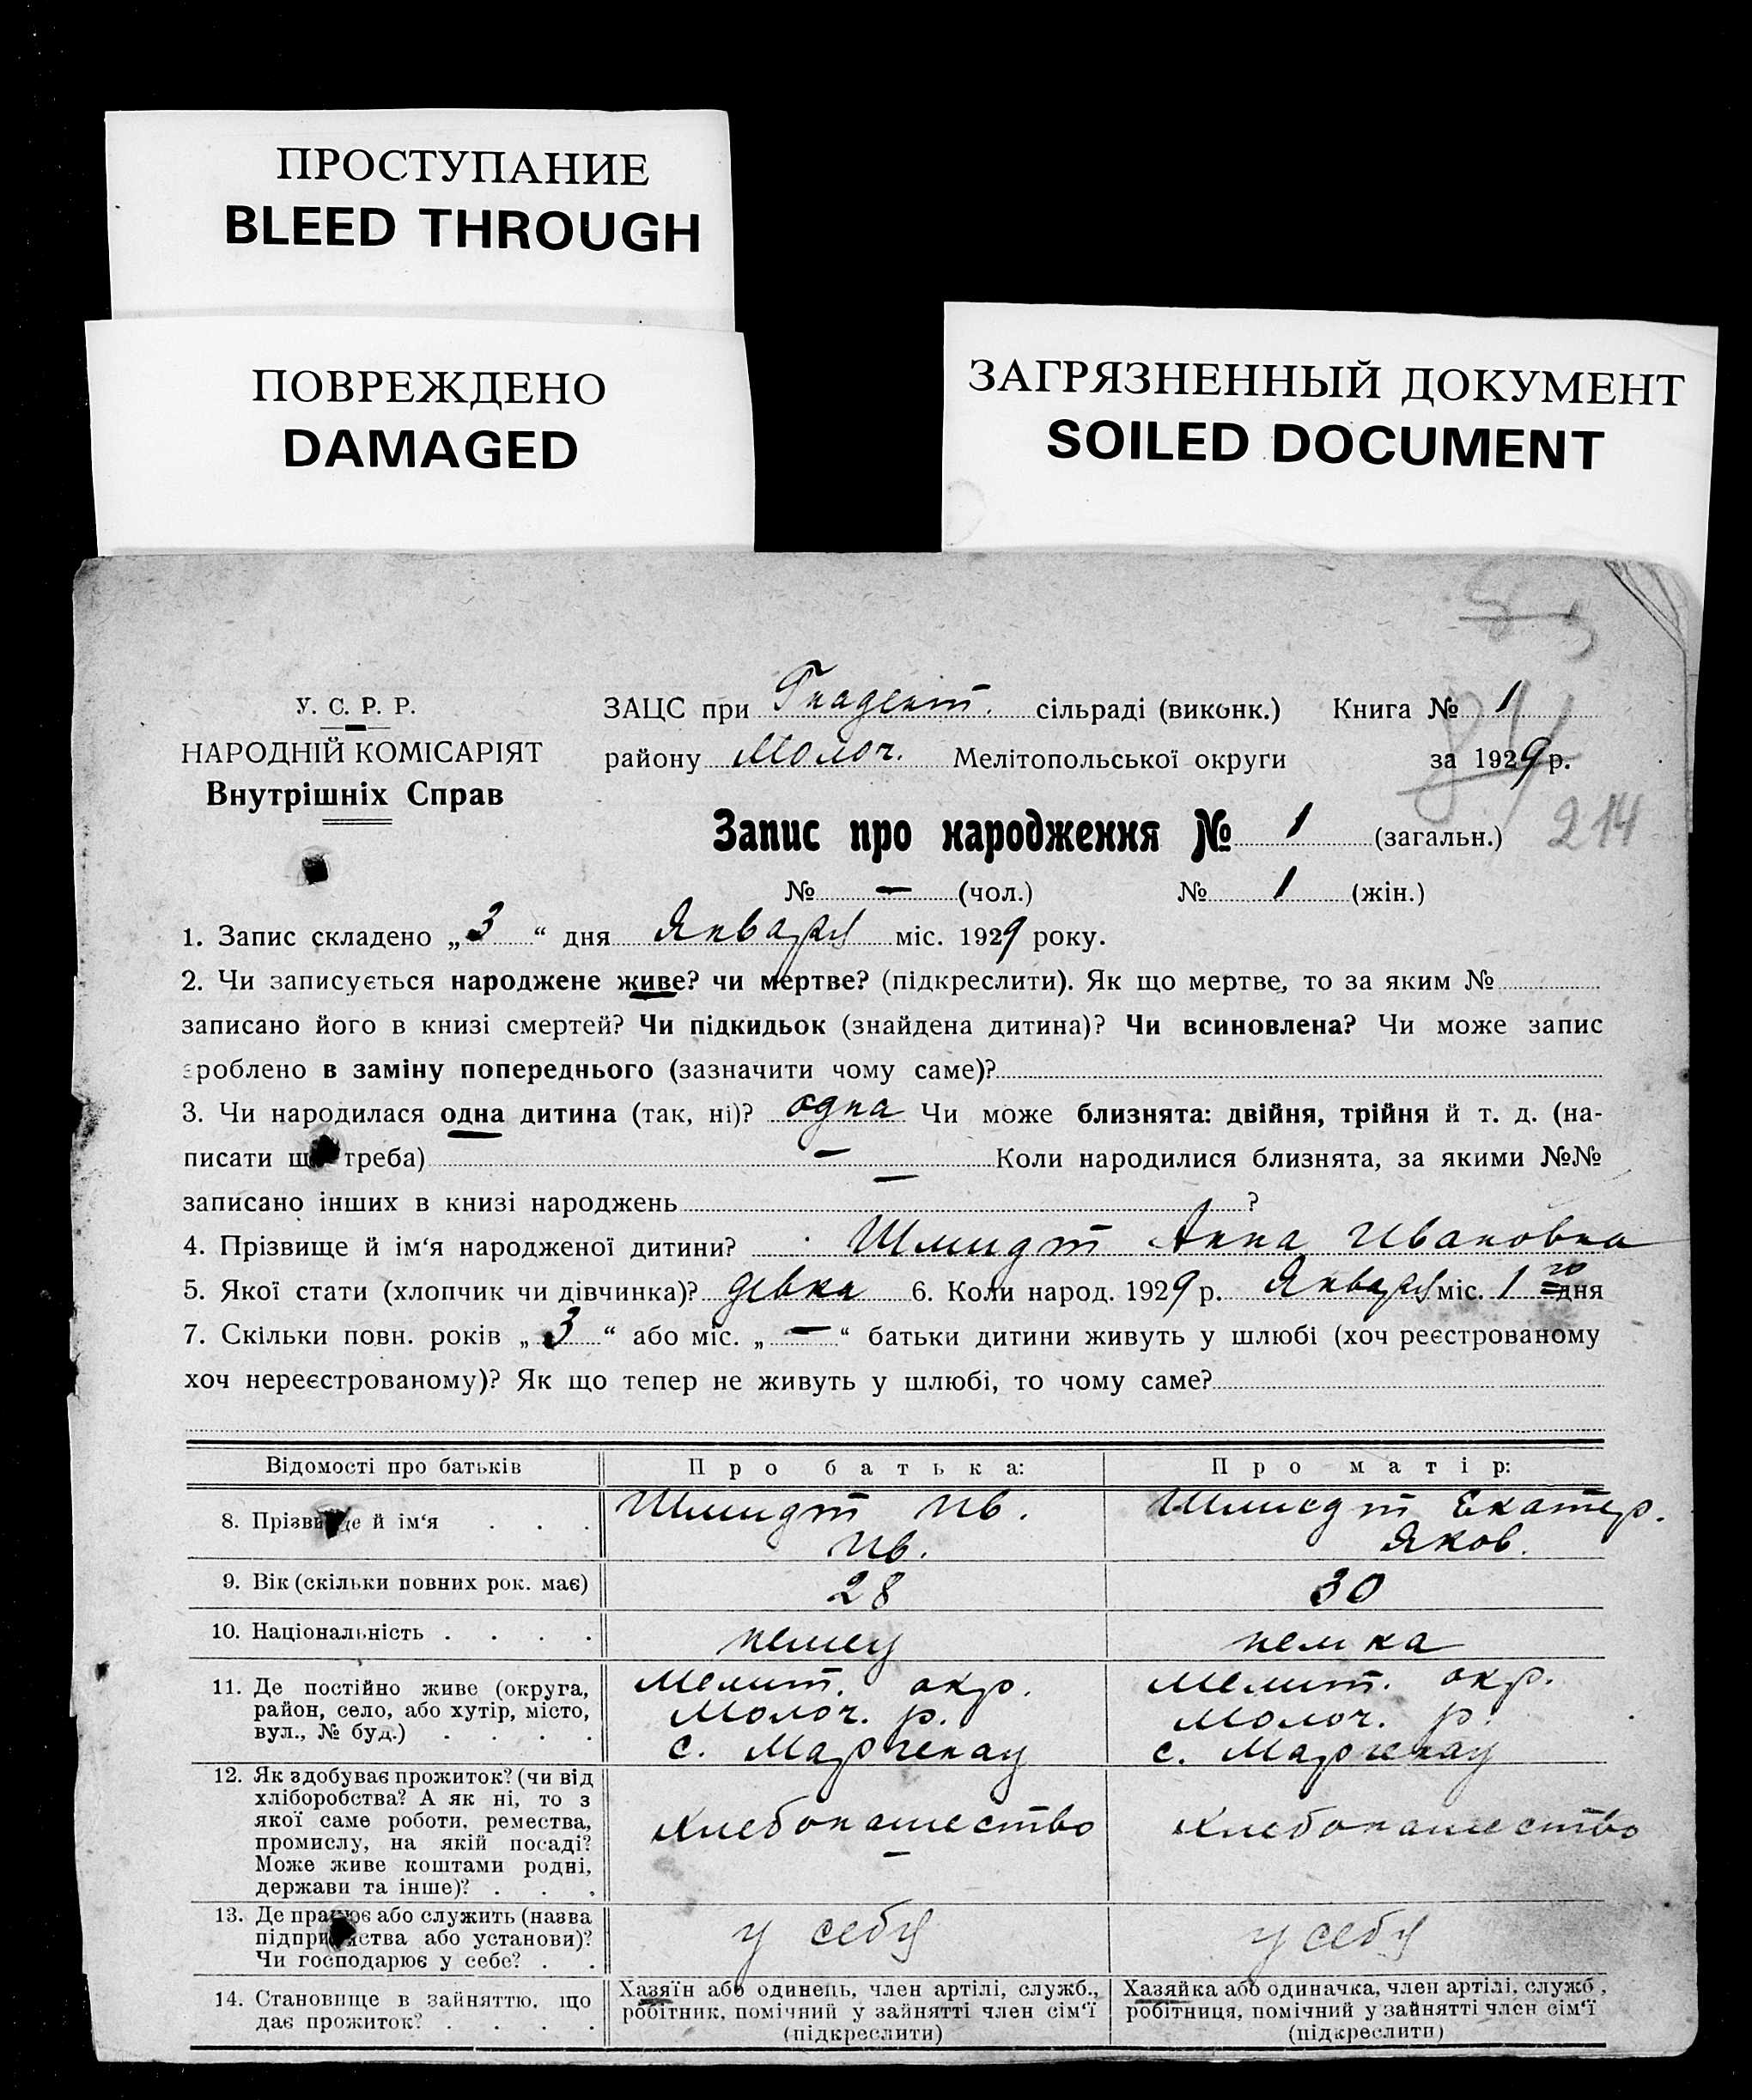 ПРОСТУПАНИЕ
BLEED THROUGH
ПОВРЕЖДЕНО
DAMAGED
ЗАГРЯЗНЕННЫЙ ДОКУМЕНТ
SOILED DOCUMENT
У. С. Р. Р.
НАРОДНІЙ КОМІСАРІЯТ
Внутрішніх Справ
ЗАЦС при Гнадент. сільраді (виконк.) Книга № 1
району Молоч. Мелітопольської округи за 1929 р.
214
Запис про народження № 1 (загальн.)
№ — (чол.) № 1 (жін.)
1. Запис складено „3“ дня Января міс. 1929 року.
2. Чи записується народжене живе? чи мертве? (підкреслити). Як що мертве, то за яким №
записано його в книзі смертей? Чи підкидьок (знайдена дитина)? Чи всиновлена? Чи може запис
зроблено в заміну попереднього (зазначити чому саме)?
3. Чи народилася одна дитина (так, ні)? одна Чи може близнята: двійня, трійня й т. д. (на-
писати що треба) — Коли народилися близнята, за якими №№
записано інших в книзі народжень — ?
4. Прізвище й ім‘я народженої дитини? Шмидт Анна Ивановна
5. Якої стати (хлопчик чи дівчинка)? девка 6. Коли народ. 1929 р. Января міс. 1 го дня
7. Скільки повн. років „3“ або міс. „—“ батьки дитини живуть у шлюбі (хоч реєстрованому
хоч нереєстрованому)? Як що тепер не живуть у шлюбі, то чому саме?
Відомості про батьків Про батька: Про матір:
8. Прізвище й ім‘я . . . Шмидт Ив. Шмидт Екатер.
Ив. Яков.
9. Вік (скільки повних рок. має) 28 30
10. Національність . . . . немец немка
11. Де постійно живе (округа, Мелит. окр. Мелит. окр.
район, село, або хутір, місто, Молоч. р. Молоч. р.
вул., № буд.) . . . . с. Маргенау с. Маргенау
12. Як здобуває прожиток? (чи від
хліборобства? А як ні, то з
якої саме роботи, ремества, хлебопашество хлебопашество
промислу, на якій посаді?
Може живе коштами родні,
держави та інше)? . . .
13. Де працює або служить (назва у себя у себя
підприємства або установи)?
Чи господарює у себе? . .
14. Становище в зайняттю, що Хазяїн або одинець, член артілі, служб., Хазяйка або одиначка, член артілі, служб.,
дає прожиток? . . . . робітник, помічний у зайнятті член сім‘ї робітниця, помічний у зайнятті член сім‘ї
(підкреслити) (підкреслити)